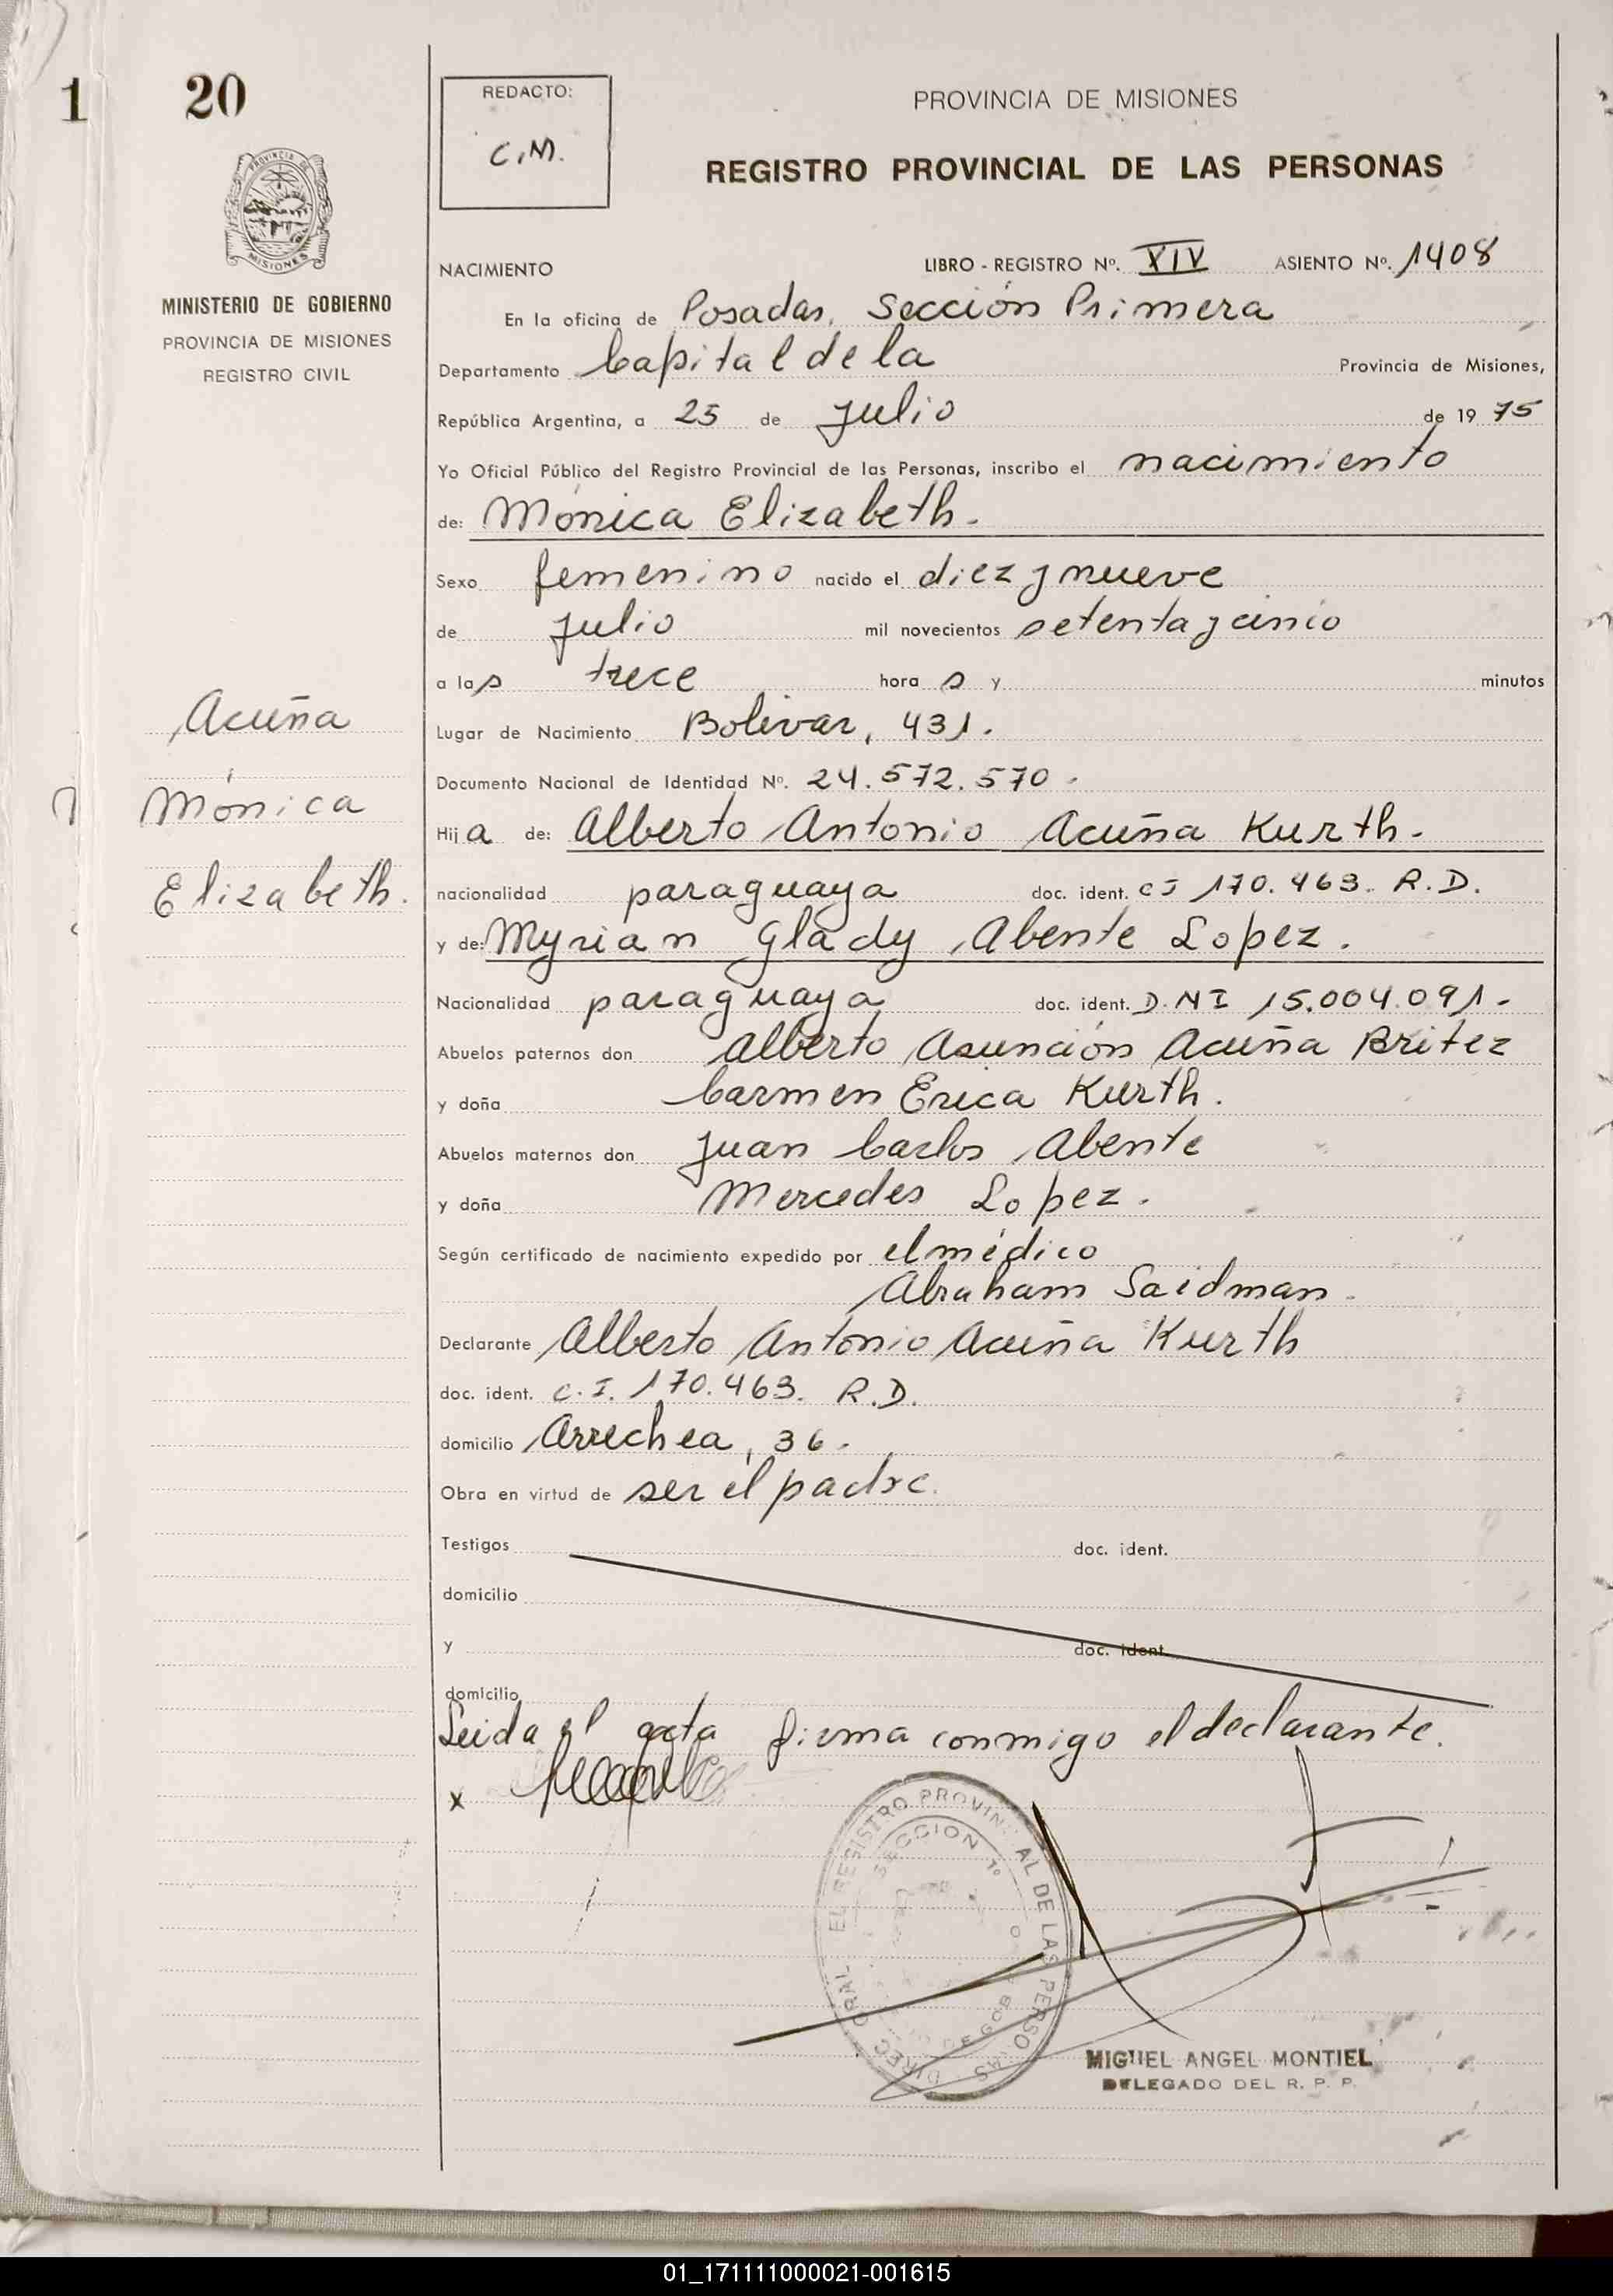 1 20
REDACTO:
C.M.
PROVINCIA DE MISIONES
REGISTRO PROVINCIAL DE LAS PERSONAS
PROVINCIA DE
MISIONES
MINISTERIO DE GOBIERNO
PROVINCIA DE MISIONES
REGISTRO CIVIL
NACIMIENTO LIBRO - REGISTRO Nº. XIV ASIENTO Nº. 1408
En la oficina de Posadas, Sección Primera
Departamento Capital de la Provincia de Misiones,
República Argentina, a 25 de Julio de 19 75
Yo Oficial Público del Registro Provincial de las Personas, inscribo el nacimiento
de: Mónica Elizabeth.
Sexo femenino nacido el diez y nueve
de Julio mil novecientos setenta y cinco
a las trece hora s y minutos
Acuña
Mónica
Elizabeth.
Lugar de Nacimiento Bolivar, 431.
Documento Nacional de Identidad Nº. 24.572.570.
Hija de: Alberto Antonio Acuña Kurth.
nacionalidad paraguaya doc. ident. CI 170.463. R.D.
y de: Myrian Glady Abente Lopez.
Nacionalidad paraguaya doc. ident. D.NI 15.004.091.
Abuelos paternos don Alberto Asunción Acuña Britez
y doña Carmen Erica Kurth.
Abuelos maternos don Juan Carlos Abente
y doña Mercedes Lopez.
Según certificado de nacimiento expedido por el médico
Abraham Saidman.
Declarante Alberto Antonio Acuña Kurth
doc. ident. C.I. 170.463. R.D.
domicilio Arrechea, 36.
Obra en virtud de ser el padre.
Testigos doc. ident.
domicilio
y doc. ident.
domicilio
Leida el acta firma conmigo el declarante.
x
SECCION 1º
MIGUEL ANGEL MONTIEL
DELEGADO DEL R. P. P.
01_171111000021-001615